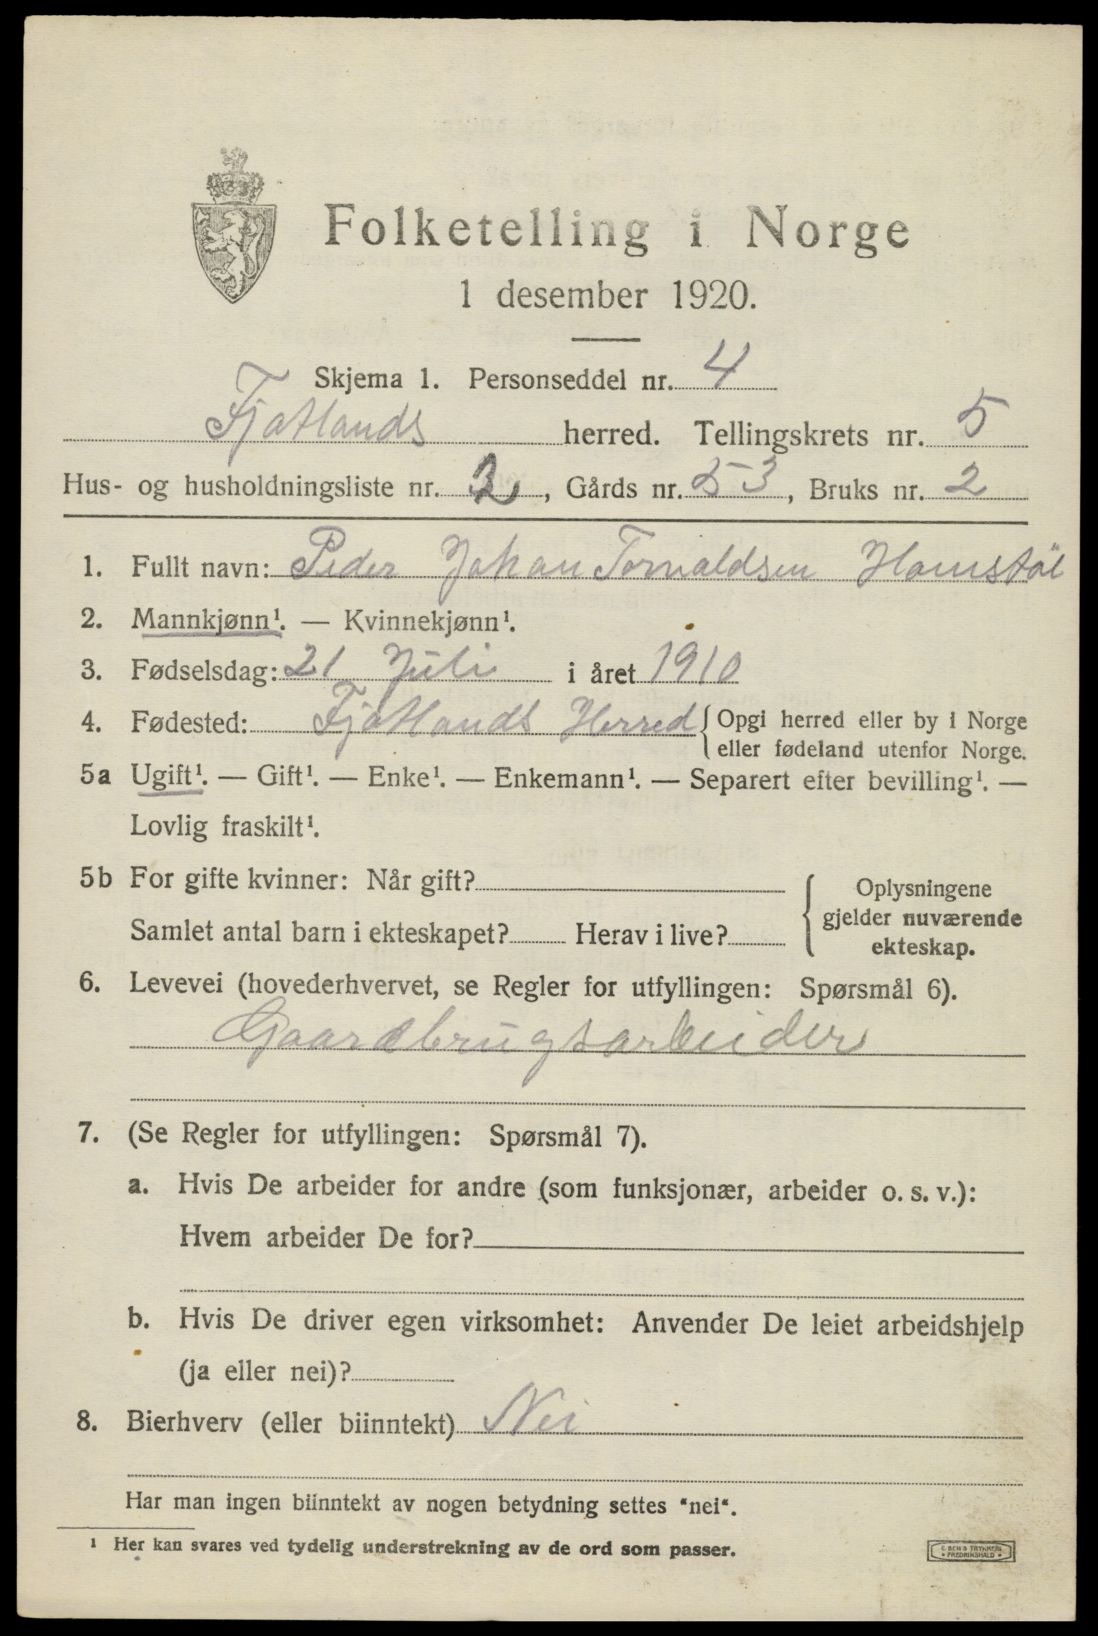 Folketelling i Norge
1 desember 1920.
Skjema 1. Personseddel nr. 4
Fjotlands herred. Tellingskrets nr. 5
Hus- og husholdningsliste nr. 2, Gårds nr. 53, Bruks nr. 2
1. Fullt navn: Peder Johan Tornaldsen Homstøl
2. Mannkjønn¹. — Kvinnekjønn¹.
3. Fødselsdag: 21 Juli i året 1910
4. Fødested: Fjotlands Herred {Opgi herred eller by i Norge
eller fødeland utenfor Norge.
5a Ugift¹. — Gift¹. — Enke¹. — Enkemann¹. — Separert efter bevilling¹. —
Lovlig fraskilt¹.
5b For gifte kvinner: Når gift?
Samlet antal barn i ekteskapet? Herav i live?
{ Oplysningene
gjelder nuværende
ekteskap.
6. Levevei (hovederhvervet, se Regler for utfyllingen: Spørsmål 6).
Gaardbrugsarbeider
7. (Se Regler for utfyllingen: Spørsmål 7).
a. Hvis De arbeider for andre (som funksjonær, arbeider o. s. v.):
Hvem arbeider De for?
b. Hvis De driver egen virksomhet: Anvender De leiet arbeidshjelp
(ja eller nei)?
8. Bierhverv (eller biinntekt) Nei
Har man ingen biinntekt av nogen betydning settes "nei".
¹ Her kan svares ved tydelig understrekning av de ord som passer.
FREDRIKSHALD